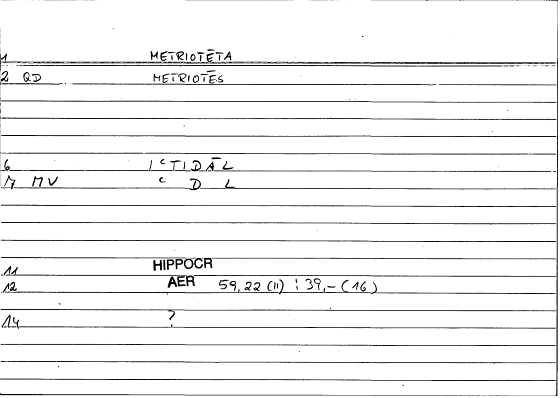 1 METRIOTĒTA
2 QD METRIOTĒS
6 IcTIDĀL
7 MV c D L
11 HIPPOCR
12 AER 59,22 (11) : 39,- (16)
14 ?